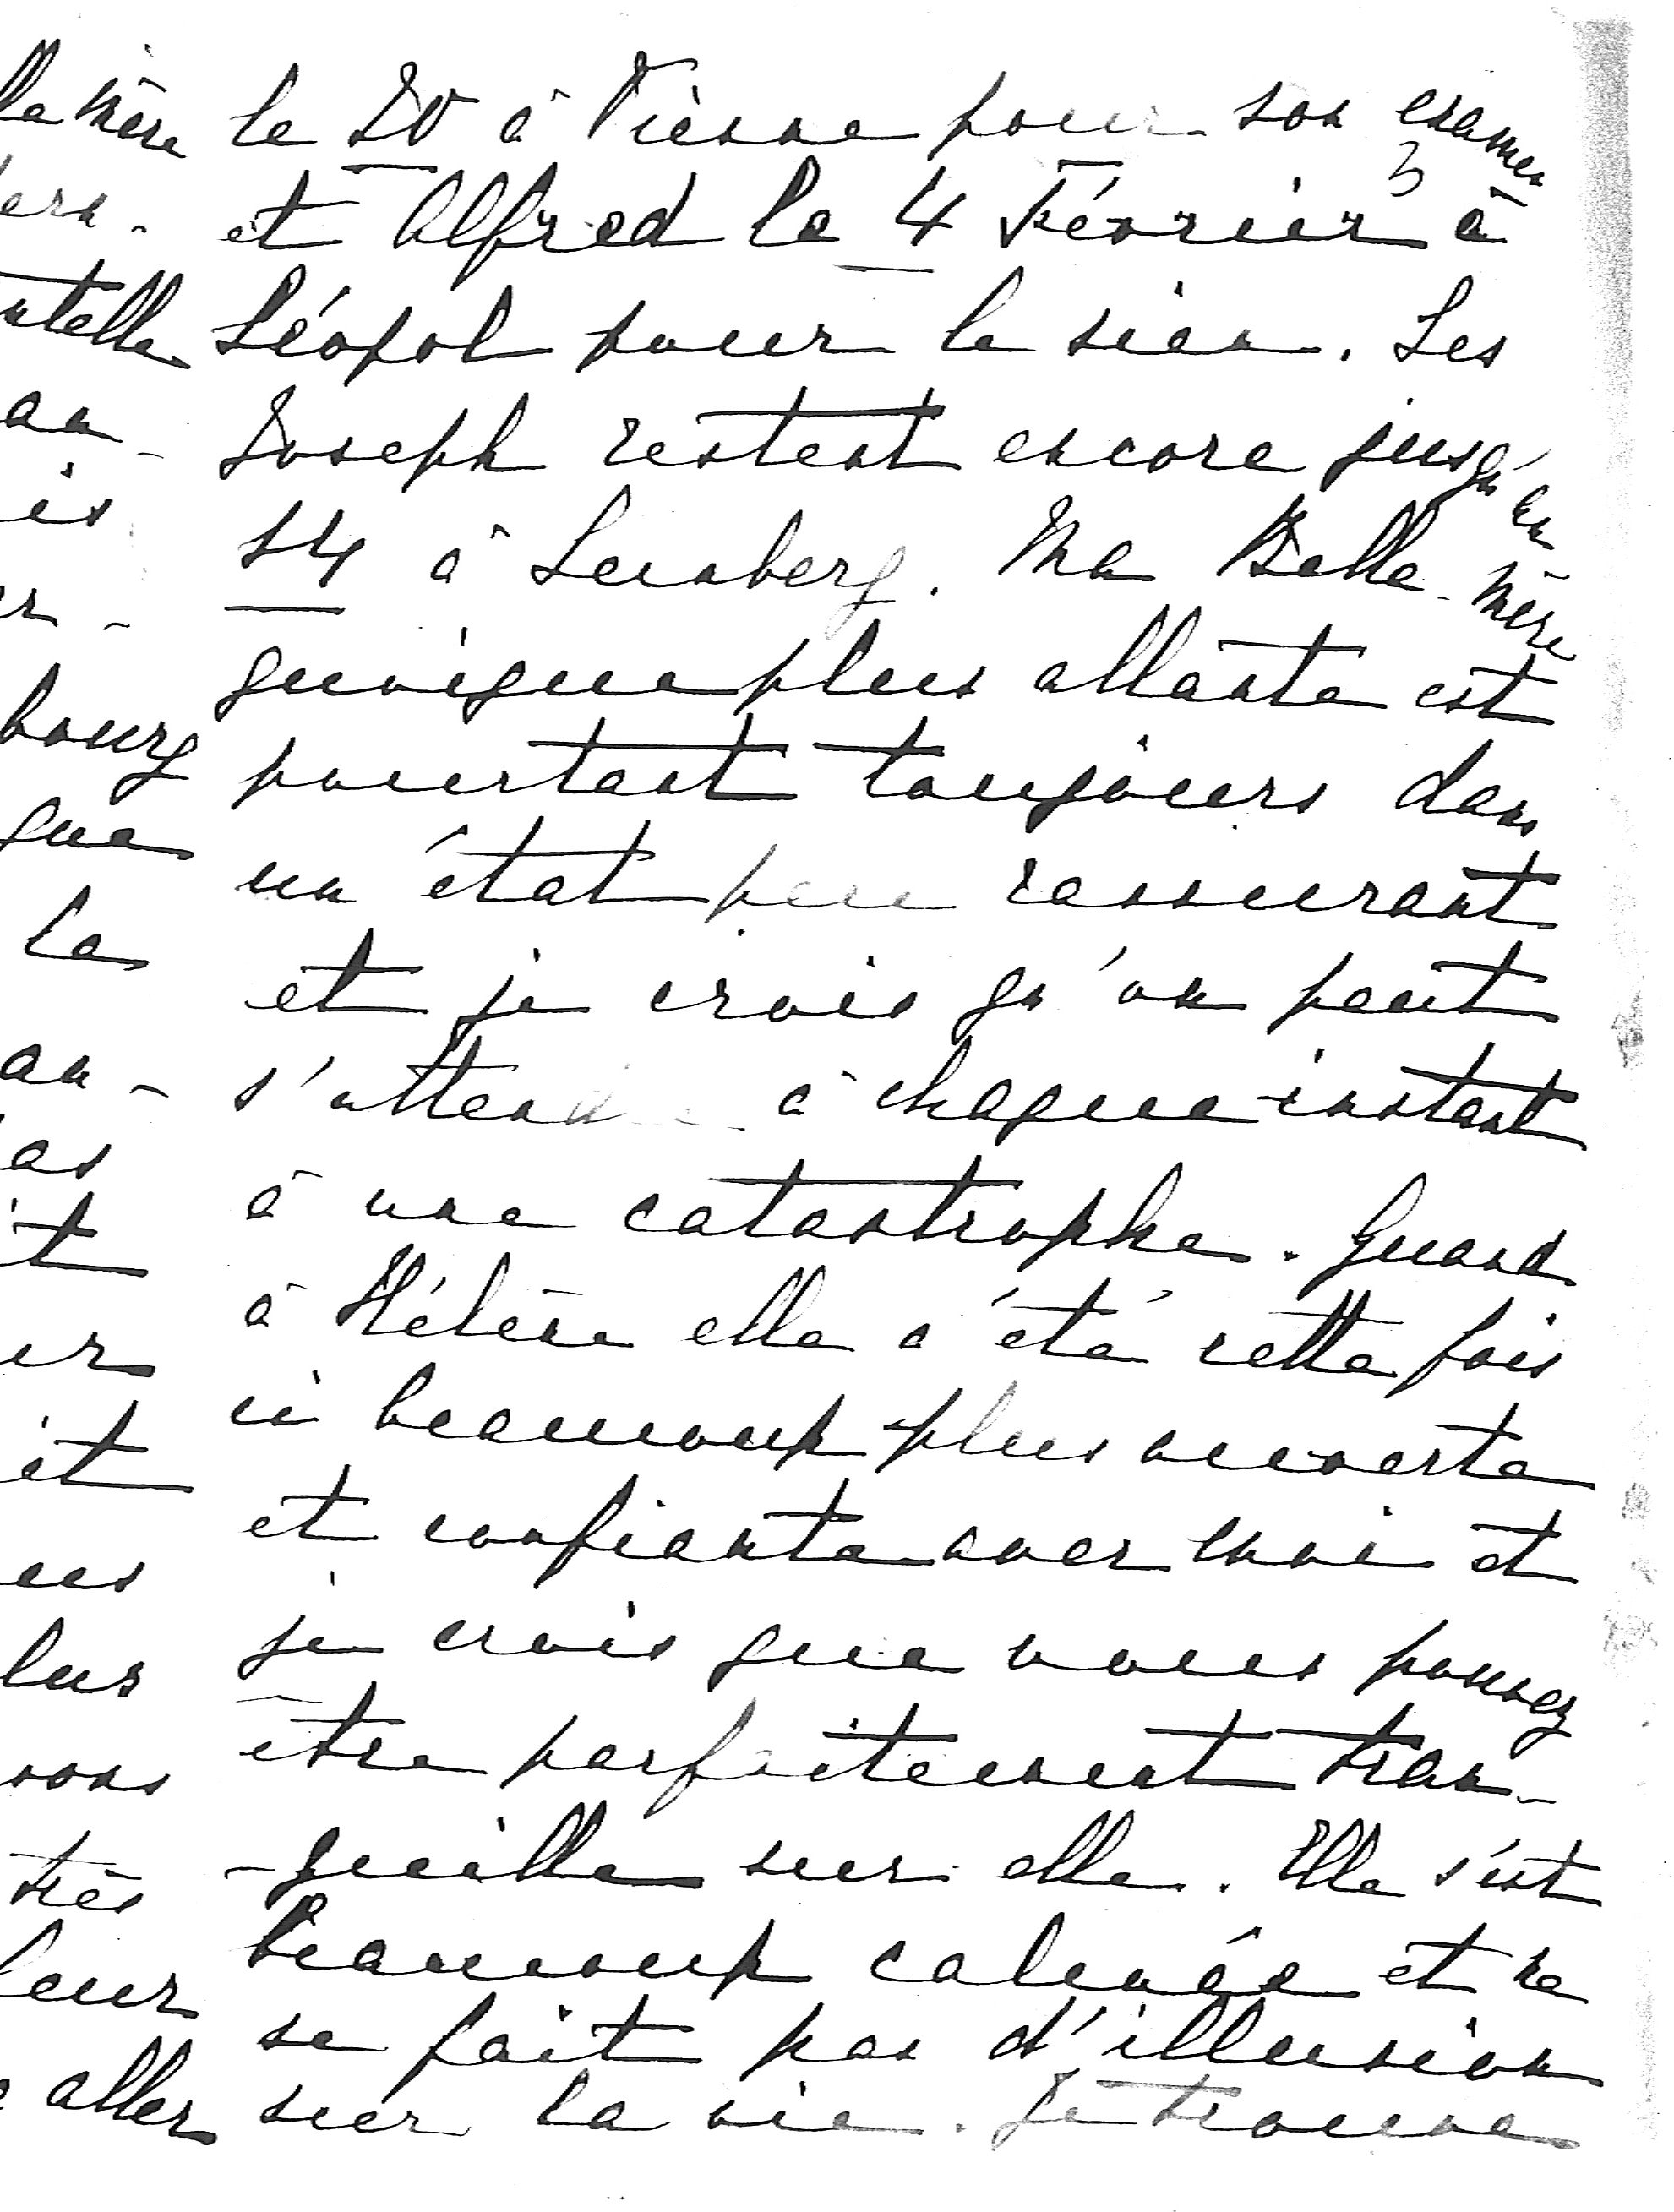 la mère
ntelle
an-
is
er -
bourg
que
la
an -
as
it
er
it
us
lus
vons
très
leur
aller
le 10 à Vienne pour son examen
et Alfred le 4 Février à
Léopol pour le sien. Les
Joseph restent encore jusqu'au
14 à Lemberg. Ma Belle-Mère
quoique plus allante est
pourtant toujours dans
un état peu rassurant
et je crois qu'on peut
s'attendre à chaque instant
à une catastrophe. Quand
à Hélène elle a été cette fois
ci beaucoup plus ouverte
et confiante avec moi et
je crois que vous pouvez
être parfaitement tran-
-quille sur elle. Elle s'est
beaucoup calmée et ne
se fait pas d'illusion
sur la vie. Je trouve